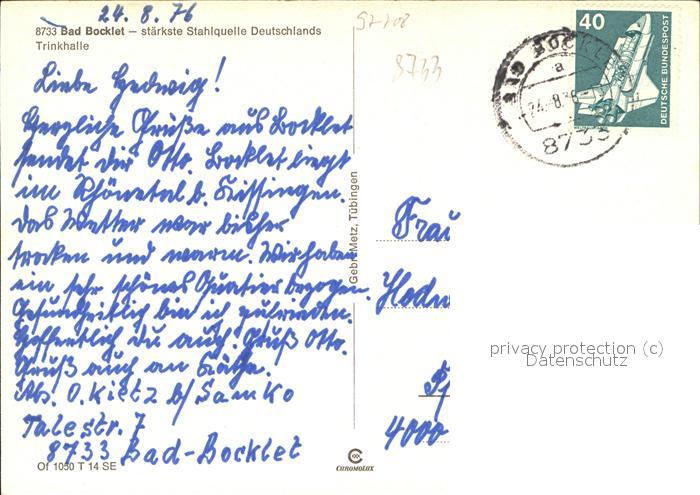 24. 8. 76
8733 Bad Bocklet – stärkste Stahlquelle Deutschlands
Trinkhalle
Liebe Hedwig!
Herzliche Grüße aus Bocklet
sendet dir Otto. Bocklet liegt
im Rhönetal b. Kissingen.
Das Wetter war bisher
trocken und warm. Wir haben
ein sehr schönes Quatier bezogen.
Gesundheitlich bin ich zufrieden.
Hoffentlich du auch. Gruß Otto.
Gruß auch an Käthe.
Abs. O. Kietz b/ Samko
Talestr. 7
8733 Bad-Bocklet
Of 1050 T 14 SE
Gebr. Metz, Tübingen
CHROMOLUX
8733
BAD BOCKL
a
24.-8.
8733
40
DEUTSCHE BUNDESPOST
Frau
Hedw
4000
privacy protection (c)
Datenschutz